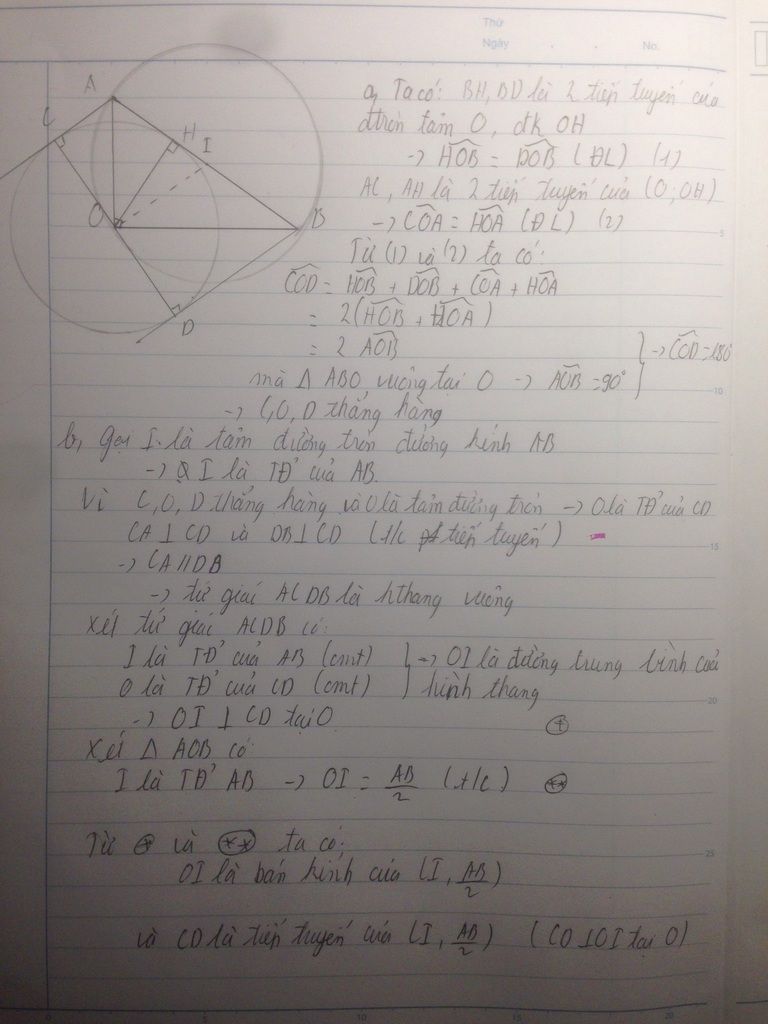 Thứ
Ngày . . No.
A
C
H
I
O
B
D
a, Ta có: BH, BD là 2 tiếp tuyến của
đtròn tâm O, đk OH
-> HOB = DOB (ĐL) (1)
AC, AH là 2 tiếp tuyến của (O; OH)
-> COA = HOA (ĐL) (2)
Từ (1) và (2) ta có:
COD = HOB + DOB + COA + HOA
= 2(HOB + HOA)
= 2 AOB
mà Δ ABO vuông tại O -> AOB = 90° } -> COD = 180°
-> C, O, D thẳng hàng
b, Gọi I là tâm đường tròn đường kính AB
-> I là TĐ' của AB.
Vì C, O, D thẳng hàng và O là tâm đường tròn -> O là TĐ' của CD
CA ⊥ CD và DB ⊥ CD (t/c tiếp tuyến)
-> CA // DB
-> tứ giác ACDB là hthang vuông
Xét tứ giác ACDB có:
I là TĐ' của AB (cmt) } -> OI là đường trung bình của
O là TĐ' của CD (cmt) } hình thang
-> OI ⊥ CD tại O. (*)
Xét Δ AOB có:
I là TĐ' AB -> OI = AB/2 (t/c) (**)
Từ (*) và (**) ta có:
OI là bán kính của (I, AB/2)
và CD là tiếp tuyến của (I, AB/2) (CD ⊥ OI tại O)
5
10
15
20
25
0 5 10 15 20